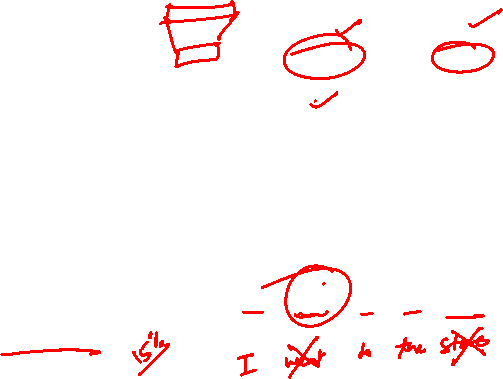 15% I went to the store